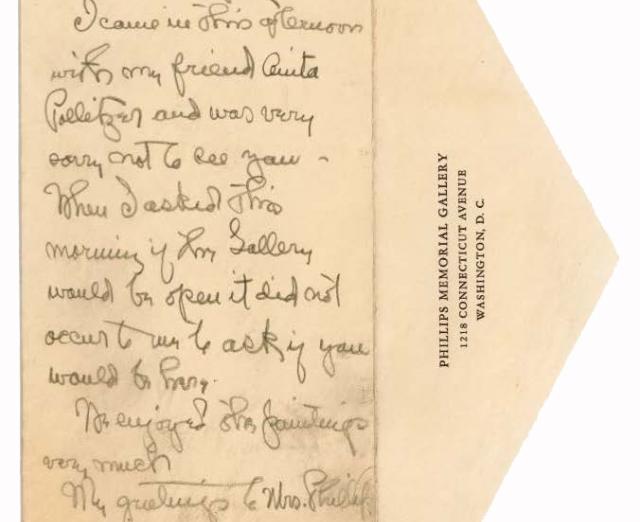 I came in this afternoon
with my friend Anita
Pollitzer and was very
sorry not to see you –
When I asked this
morning if the Gallery
would be open it did not
occur to me to ask if you
would be here.
We enjoyed the paintings
very much
My greetings to Mrs. Phillips
PHILLIPS MEMORIAL GALLERY
1218 CONNECTICUT AVENUE
WASHINGTON, D. C.